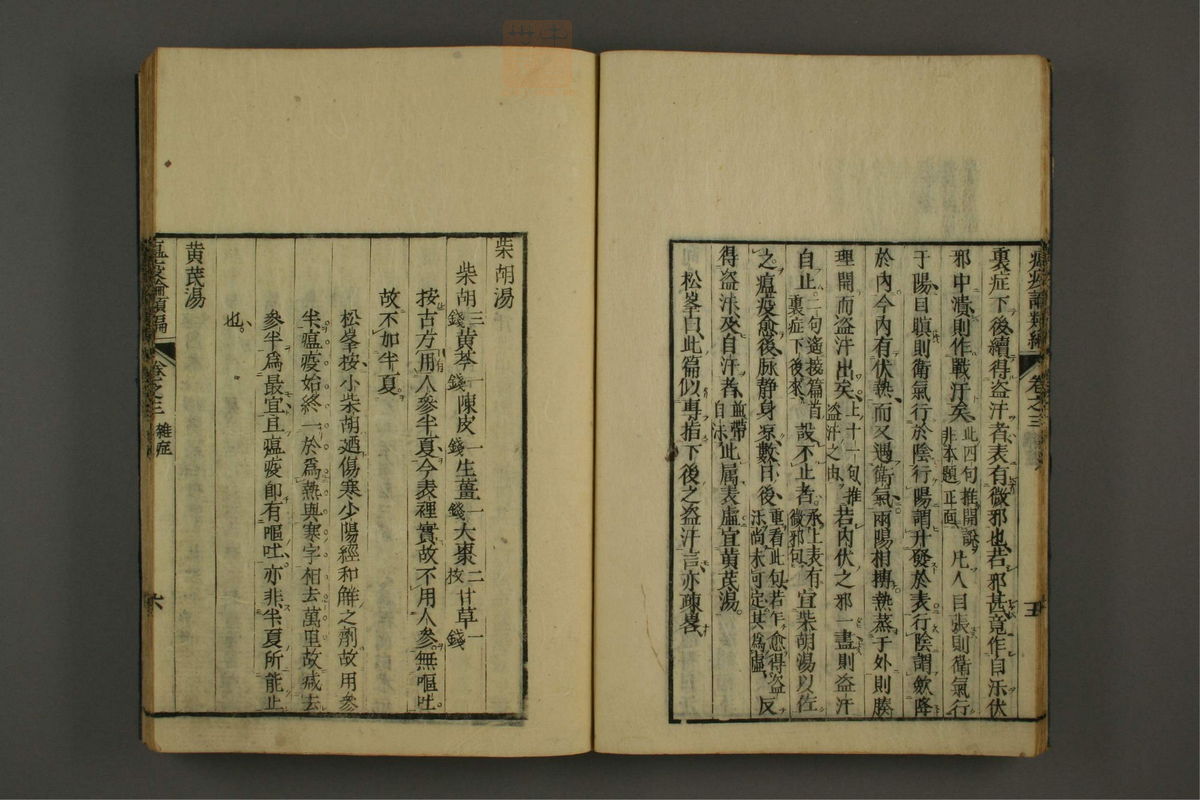 瘟疫論類編 卷之三 五
裏症下後續得盜汗者表有微邪也若邪甚竟作自汗伏
邪中潰則作戰汗矣此四句推開說非本題正面凡人目張則衛氣行
于陽目瞋則衛氣行於陰行陽謂升發於表行陰謂斂降
於內今內有伏熱而又遇衛氣兩陽相搏熱蒸于外則腠
理開而盜汗出矣上十一句推盜汗之由若內伏之邪一盡則盜汗
自止二句遙接篇首裏症下後來設不止者承上表有微邪句宜柴胡湯以佐
之瘟疫愈後脉靜身凉數日後重看此句若乍愈得盜汗尚未可定其為虛反
得盜汗及自汗者並帶自汗此属表虛宜黄芪湯
松峯曰此篇似專指下後之盜汗言亦疎畧
柴胡湯
柴胡三錢黄芩一錢陳皮一錢生薑一錢大棗二枚甘草一錢
按古方用人參半夏今表裡實故不用人參無嘔吐
故不加半夏
松峯按小柴胡迺傷寒少陽經和解之劑故用參
半瘟疫始終一於為熱與寒字相去萬里故𢦙去
參半為最宜且瘟疫即有嘔吐亦非半夏所能止
也
黄芪湯
瘟疫論類編 卷之三 雜症 六